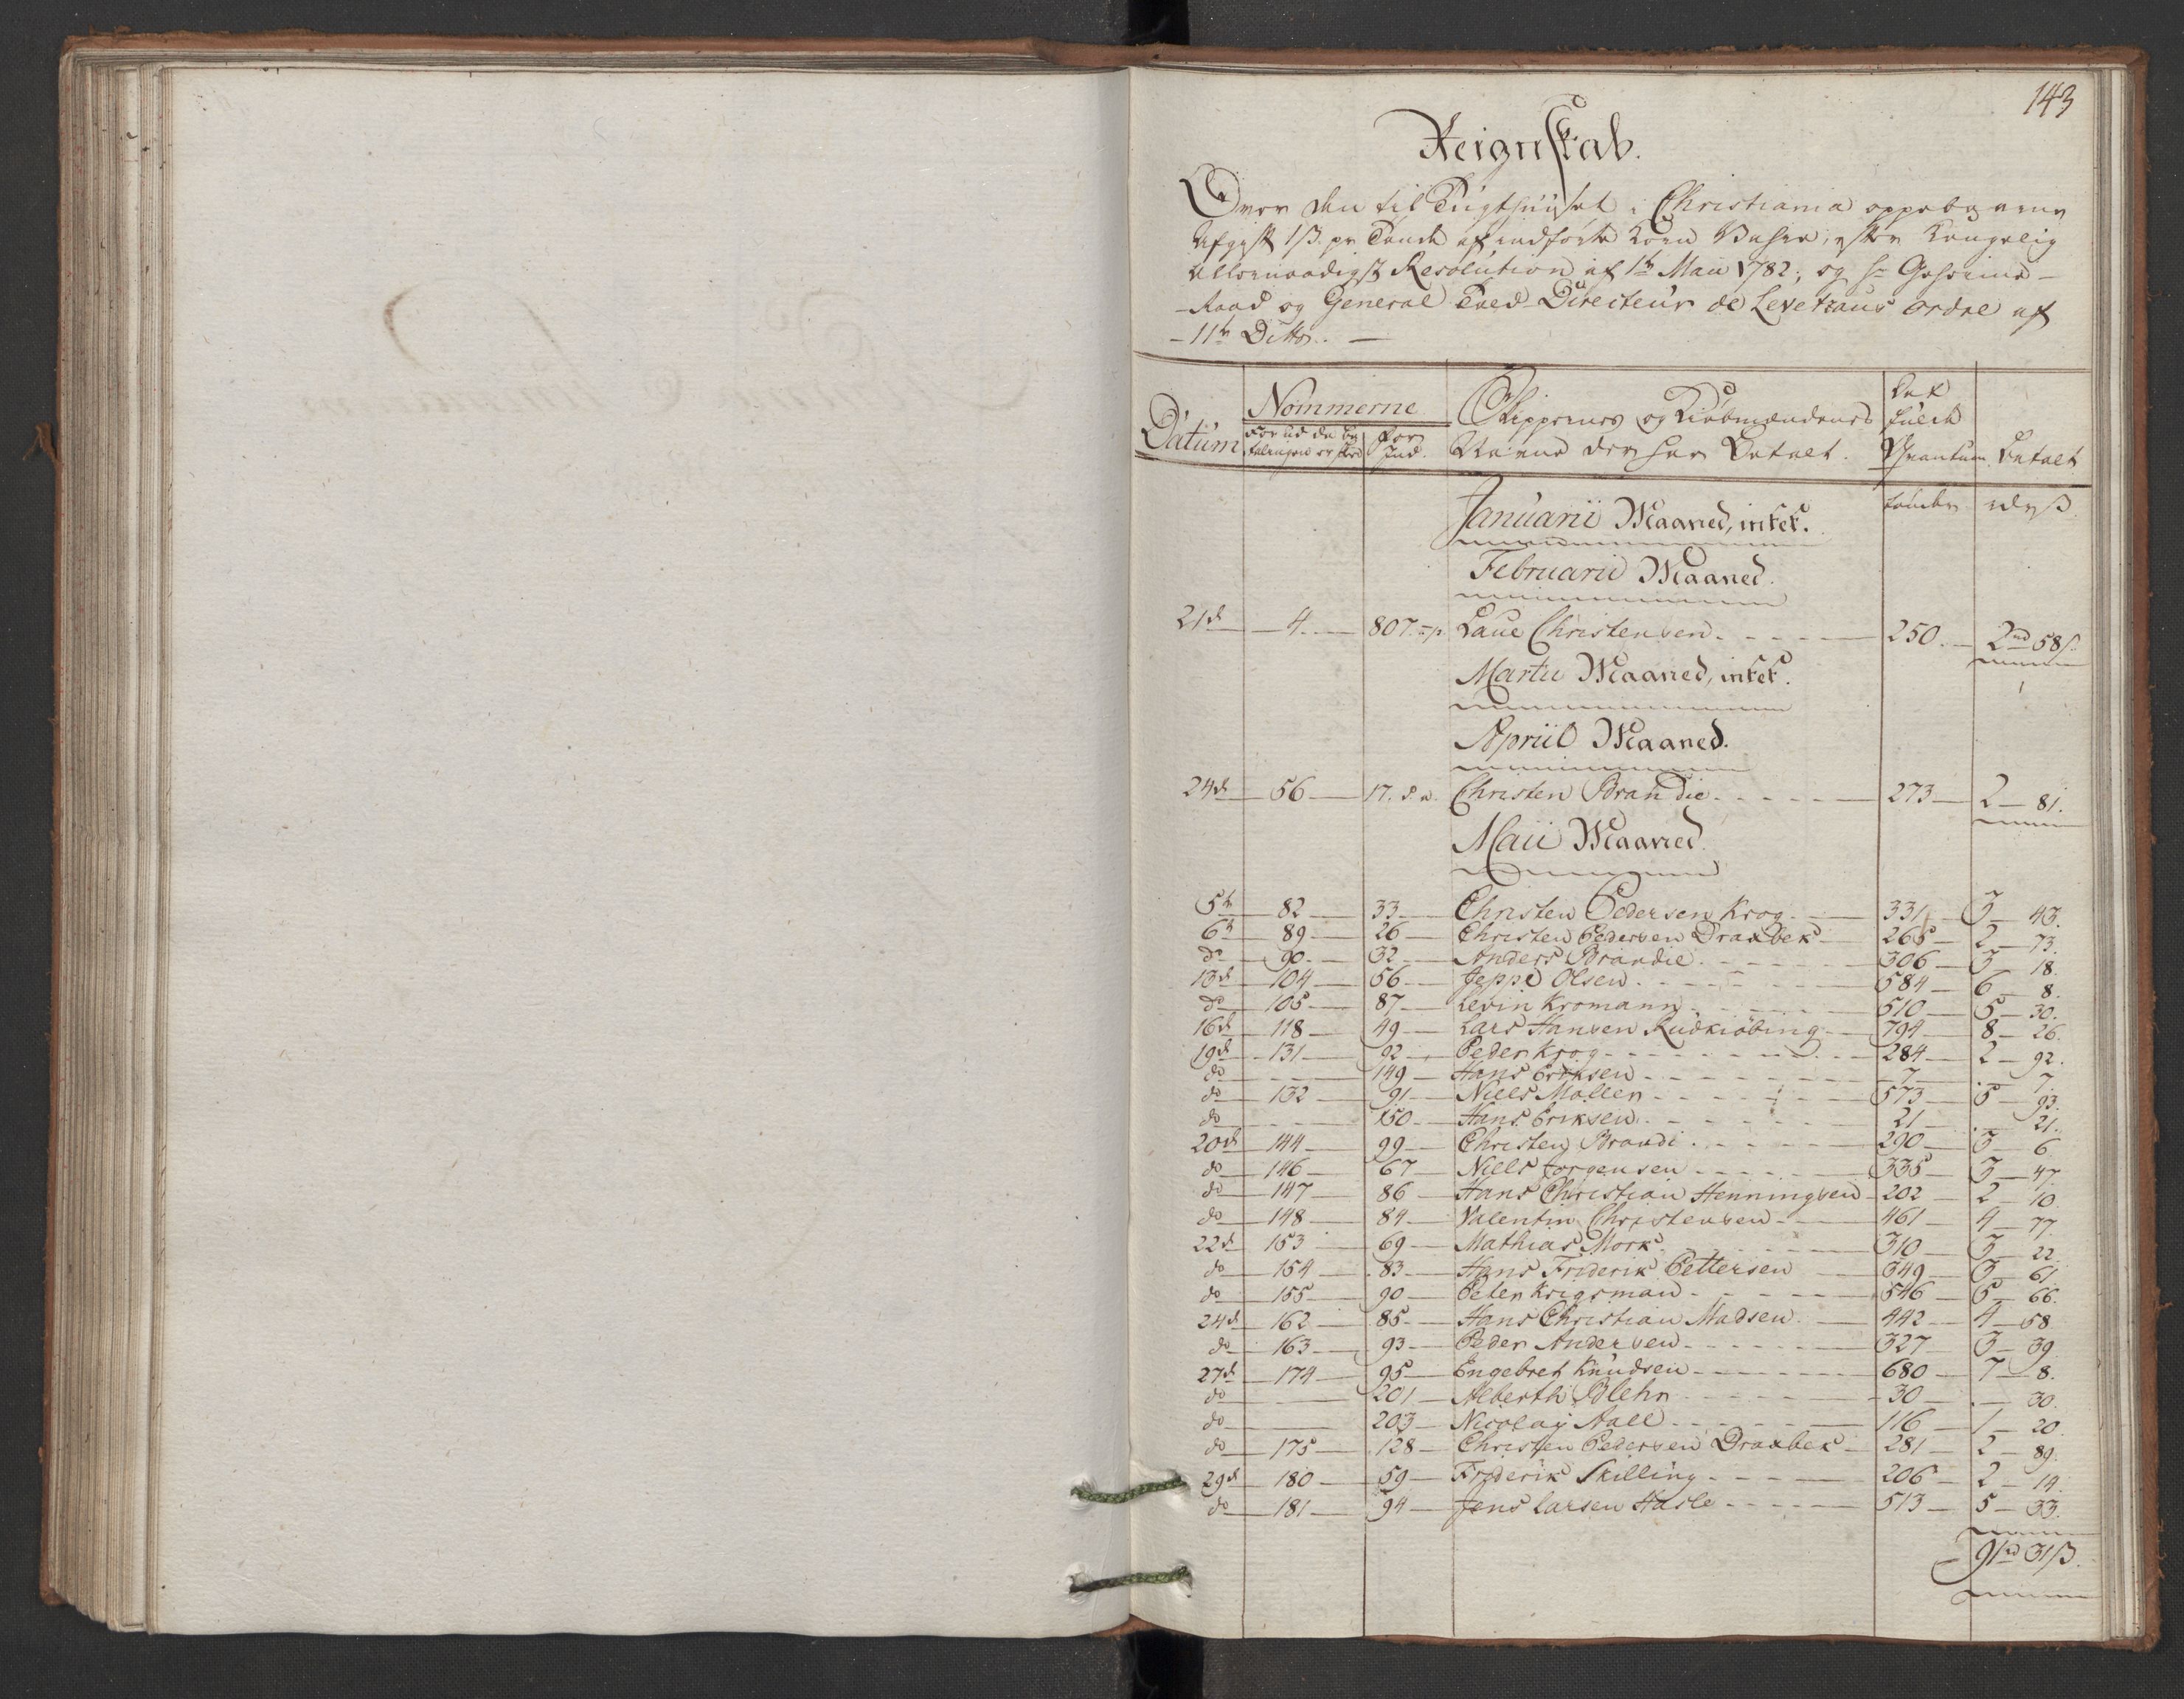 143
Reignskab.
Over den til Tugthuuset i Christiania oppebaarene
Afgift 1 ß. pr Tønde af indførte Korn Vahre, efter Kongelig
Allernaadigst Resolution af 1te Maii 1782, og Hr Geheime-
-Raad og General Told-Directeur de Levetzaus ordre af
-11te Ditto. —
Datum
Nommerne
For Ud da be
talingen er skeed
For
Ind.
Skippernes og Kiøbmændenes
Navne der har Betalt.
Det
fulde
Qvantum
Betalt
Januarii Maaned, intet.
tønder
rdr ß
Februarii Maaned.
21de — 4. — 807. Laue Christensen. — 250. — 2rd 58ß.
Martii Maaned, intet.
Apriil Maaned.
24de — 56 — 17. Christen Brandie. — 273 — 2 — 81.
Maii Maaned.
5te — 82 — 33 — Christen Pedersen Krog — 331 — 3 — 43.
6te — 89 — 26 — Christen Pedersen Draxbek — 265 — 2 — 73.
do — 90 — 32 — Anders Brandie. — 306 — 3 — 18.
13de — 104 — 56 — Jeppe Olsen. — 584 — 6 — 8.
do — 105 — 87 — Levin Kromann — 510 — 5 — 30.
16de — 118 — 49 — Lars Hansen Rudkiøbing — 794 — 8 — 26.
19de — 131 — 92 — Peder Krog — 284 — 2 — 92.
do — 149 — Hans Eriksen — 7 — . — 7.
do — 132 — 91 — Niels Møller — 573 — 5 — 93.
do — 150 — Hans Eriksen. — 21 — . — 21.
20de — 144 — 99 — Christen Brandi. — 290 — 3 — 6.
do — 146 — 67 — Niels Jørgensen — 335 — 3 — 47
do — 147 — 86 — Hans Christian Henningsen — 202 — 2 — 10.
do — 148 — 84 — Valentin Christensen — 461 — 4 — 77.
22de — 153 — 69 — Mathias Mork — 310 — 3 — 22
do — 154 — 83 — Hans Friderik Pettersen — 349 — 3 — 61
do — 155 — 90 — Peter Krigsman — 546 — 5 — 66.
24de — 162 — 85 — Hans Christian Madsen. — 442 — 4 — 58
do — 163 — 93 — Peder Andersen — 327 — 3 — 39.
27de — 174 — 95 — Engebret Knudsen — 680 — 7 — 8.
do — 201 — Alberth Blehr — 30 — . — 30.
do — 203 — Nicolay Aall — 116 — 1 — 20.
do — 175 — 128 — Christen Pedersen Draxbek — 281 — 2 — 89.
29de — 180 — 59 — Friderik Skilling — 206 — 2 — 14.
do — 181 — 94 — Jens Larsen Hasle — 513 — 5 — 33.
91rd 31ß.